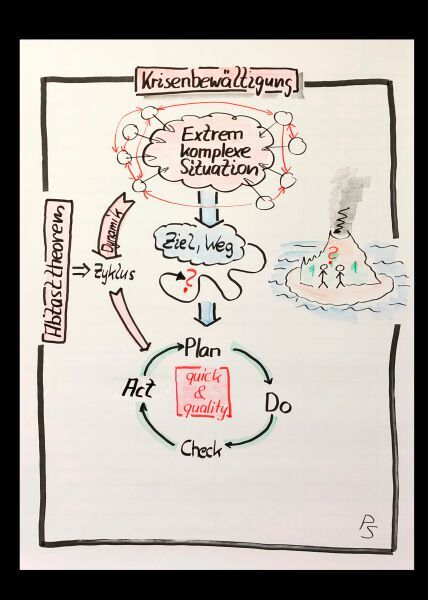 Krisenbewältigung
Extrem
komplexe
Situation
Dynamik
Ziel, Weg
?
?
Abtasttheorem
⇒ Zyklus
Plan
Act
quick
&
quality
Do
Check
PS